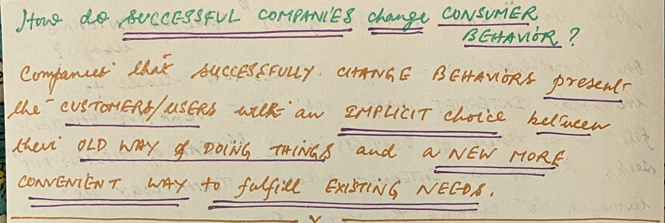 How do SUCCESSFUL COMPANIES change CONSUMER
BEHAVIOR?
Companies that SUCCESSFULLY CHANGE BEHAVIORS present
the CUSTOMERS/USERS with an IMPLICIT choice between
their OLD WAY of DOING THINGS and a NEW MORE
CONVENIENT WAY to fulfill EXISTING NEEDS.
X